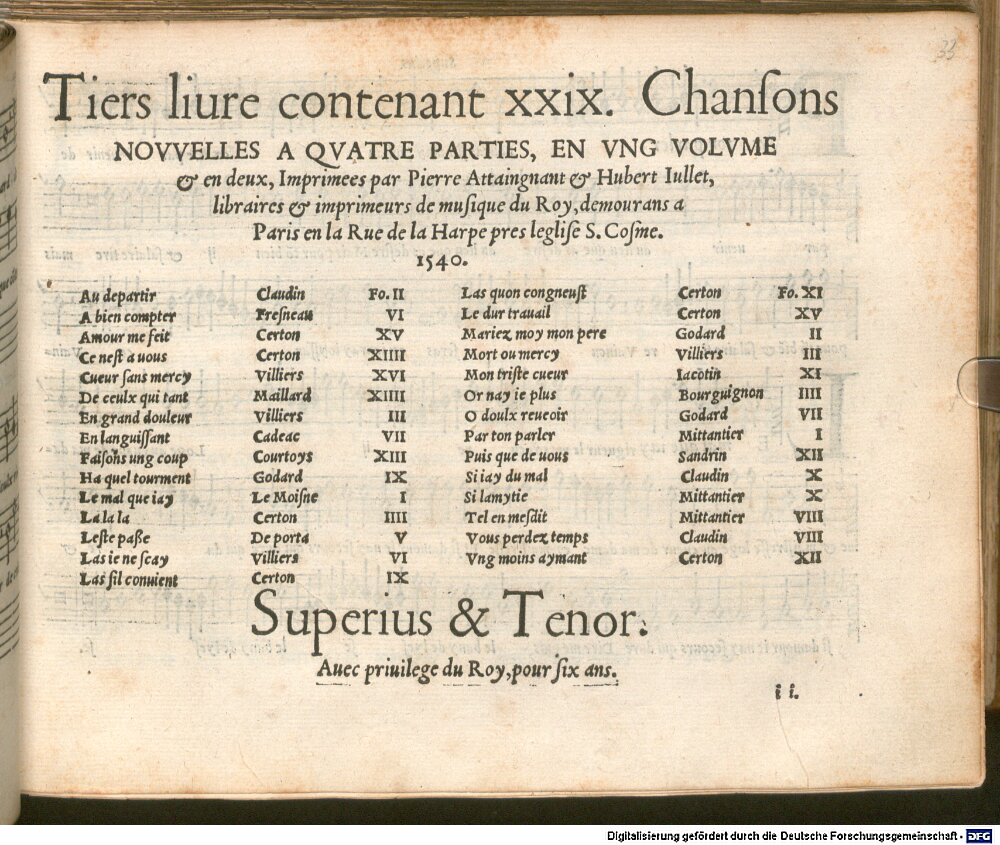 33
Tiers liure contenant xxix. Chanſons
NOVVELLES A QVATRE PARTIES, EN VNG VOLVME
& en deux, Imprimees par Pierre Attaingnant & Hubert Iullet,
libraires & imprimeurs de muſique du Roy, demourans a
Paris en la Rue de la Harpe pres legliſe S. Coſme.
1540.
Au departir Claudin Fo. II
A bien compter Freſneau VI
Amour me feit Certon XV
Ce neſt a uous Certon XIIII
Cueur ſans mercy Villiers XVI
De ceulx qui tant Maillard XIIII
En grand douleur Villiers III
En languiſſant Cadeac VII
Faiſons ung coup Courtoys XIII
Ha quel tourment Godard IX
Le mal que iay Le Moiſne I
La la la Certon IIII
Leſte paſſe De porta V
Las ie ne ſcay Villiers VI
Las ſil conuient Certon IX
Las quon congneuſt Certon Fo. XI
Le dur trauail Certon XV
Mariez moy mon pere Godard II
Mort ou mercy Villiers III
Mon triſte cueur Iacotin XI
Or nay ie plus Bourguignon IIII
O doulx reueoir Godard VII
Par ton parler Mittantier I
Puis que de uous Sandrin XII
Si iay du mal Claudin X
Si lamytie Mittantier X
Tel en meſdit Mittantier VIII
Vous perdez temps Claudin VIII
Vng moins aymant Certon XII
Superius & Tenor.
Auec priuilege du Roy, pour ſix ans.
i i.
Digitalisierung gefördert durch die Deutsche Forschungsgemeinschaft - DFG